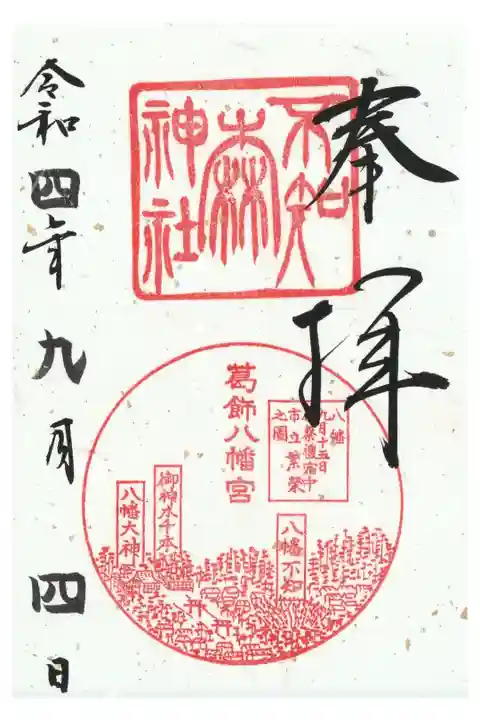 奉拝
不知
森
神社
葛飾八幡宮
八幡
九月十五日
祭禮宿中
市立繁榮
之圖
八幡不知
御神木千本
八幡大神
令和四年九月四日